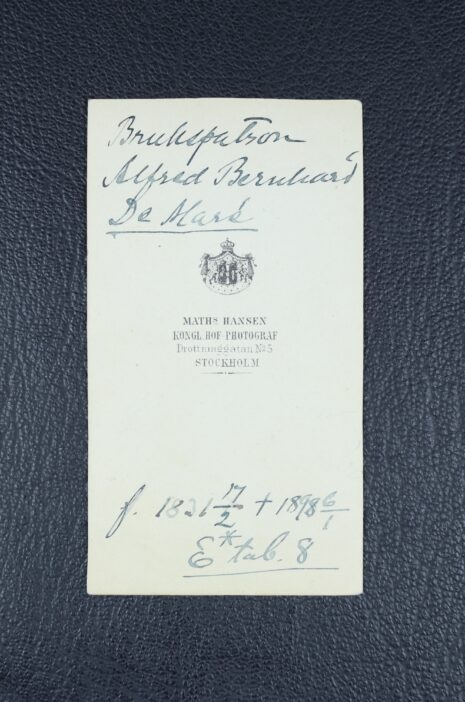 Brukspatron
Alfred Bernhard
De Maré
MATHS HANSEN
KONGL. HOF PHOTOGRAF
Drottninggatan No 5
STOCKHOLM
f. 1831 17/2 + 1898 6/1
E* tab. 8